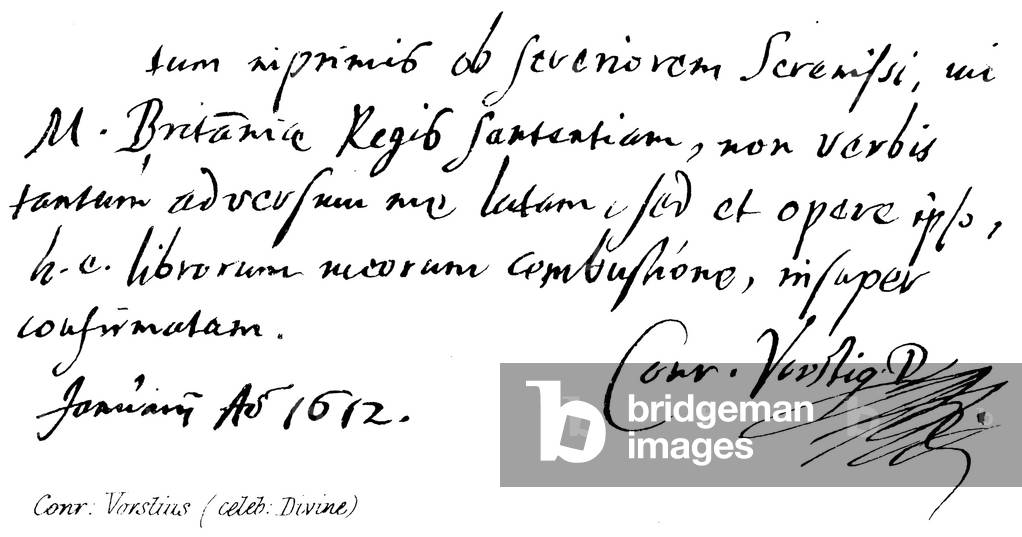 tum inprimis ob severiorem Serenissi, mi
M. Britāniæ Regis sententiam, non verbis
tantum adversum me latam, sed et opere ipso,
h. e. librorum meorum combustione, insuper
confirmatam.
Conr. Vorstius. D
Januarij Aō 1612.
bridgeman
images
Conr: Vorstius (celeb: Divine)